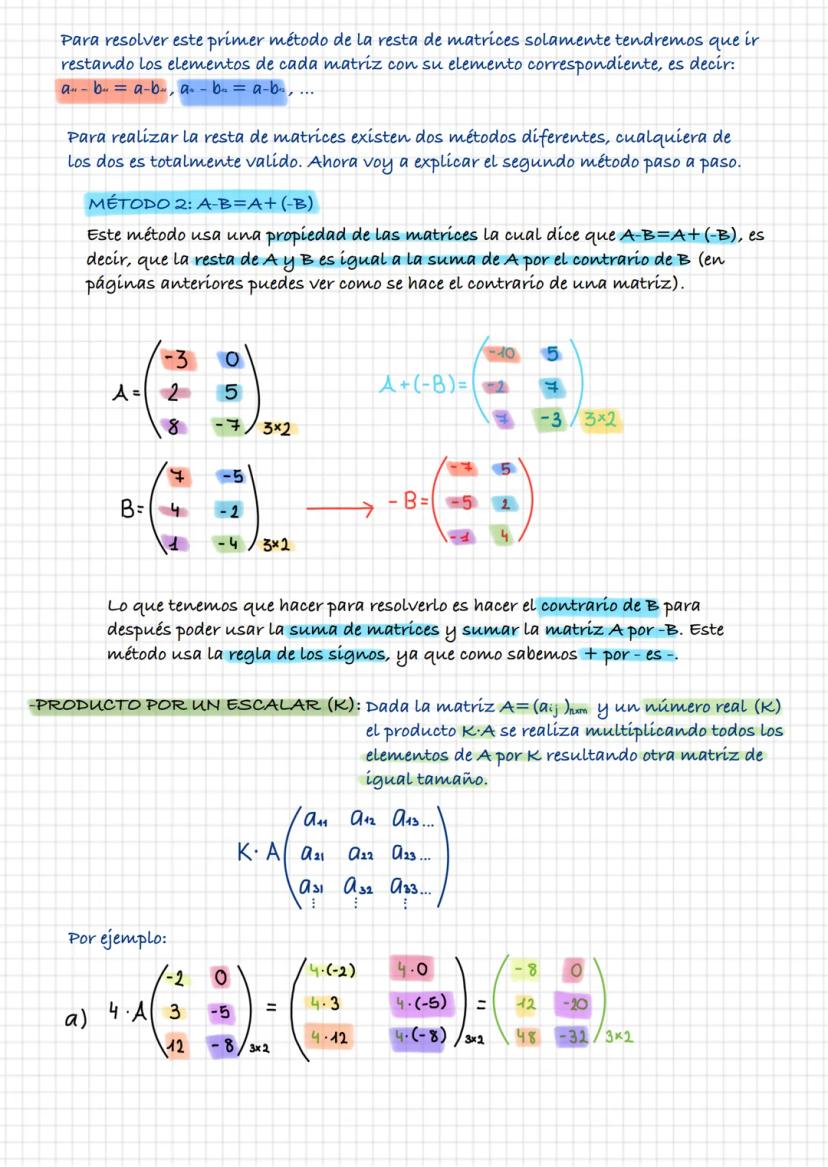 Para resolver este primer método de la resta de matrices solamente tendremos que ir
restando los elementos de cada matriz con su elemento correspondiente, es decir:
a₁₁ - b₁₁ = a-b₁₁, a₁₂ - b₁₂ = a-b₁₂, ...
Para realizar la resta de matrices existen dos métodos diferentes, cualquiera de
los dos es totalmente valido. Ahora voy a explicar el segundo método paso a paso.
MÉTODO 2: A-B=A+(-B)
Este método usa una propiedad de las matrices la cual dice que A-B=A+(-B), es
decir, que la resta de A y B es igual a la suma de A por el contrario de B (en
páginas anteriores puedes ver como se hace el contrario de una matriz).
-3 0 -10 5
A= 2 5 A+(-B)= -2 7
8 -7 3x2 7 -3 3x2
7 -5 -7 5
B= 4 -2 → -B= -5 2
1 -4 3x2 -1 4
Lo que tenemos que hacer para resolverlo es hacer el contrario de B para
después poder usar la suma de matrices y sumar la matriz A por -B. Este
método usa la regla de los signos, ya que como sabemos + por - es -.
-PRODUCTO POR UN ESCALAR (K): Dada la matriz A=(aij)nxm y un número real (K)
el producto K·A se realiza multiplicando todos los
elementos de A por K resultando otra matriz de
igual tamaño.
a₁₁ a₁₂ a₁₃...
K·A a₂₁ a₂₂ a₂₃...
a₃₁ a₃₂ a₃₃...
⋮ ⋮ ⋮
Por ejemplo:
-2 0 4·(-2) 4·0 -8 0
a) 4·A 3 -5 = 4·3 4·(-5) = 12 -20
12 -8 3x2 4·12 4·(-8) 3x2 48 -32 3x2